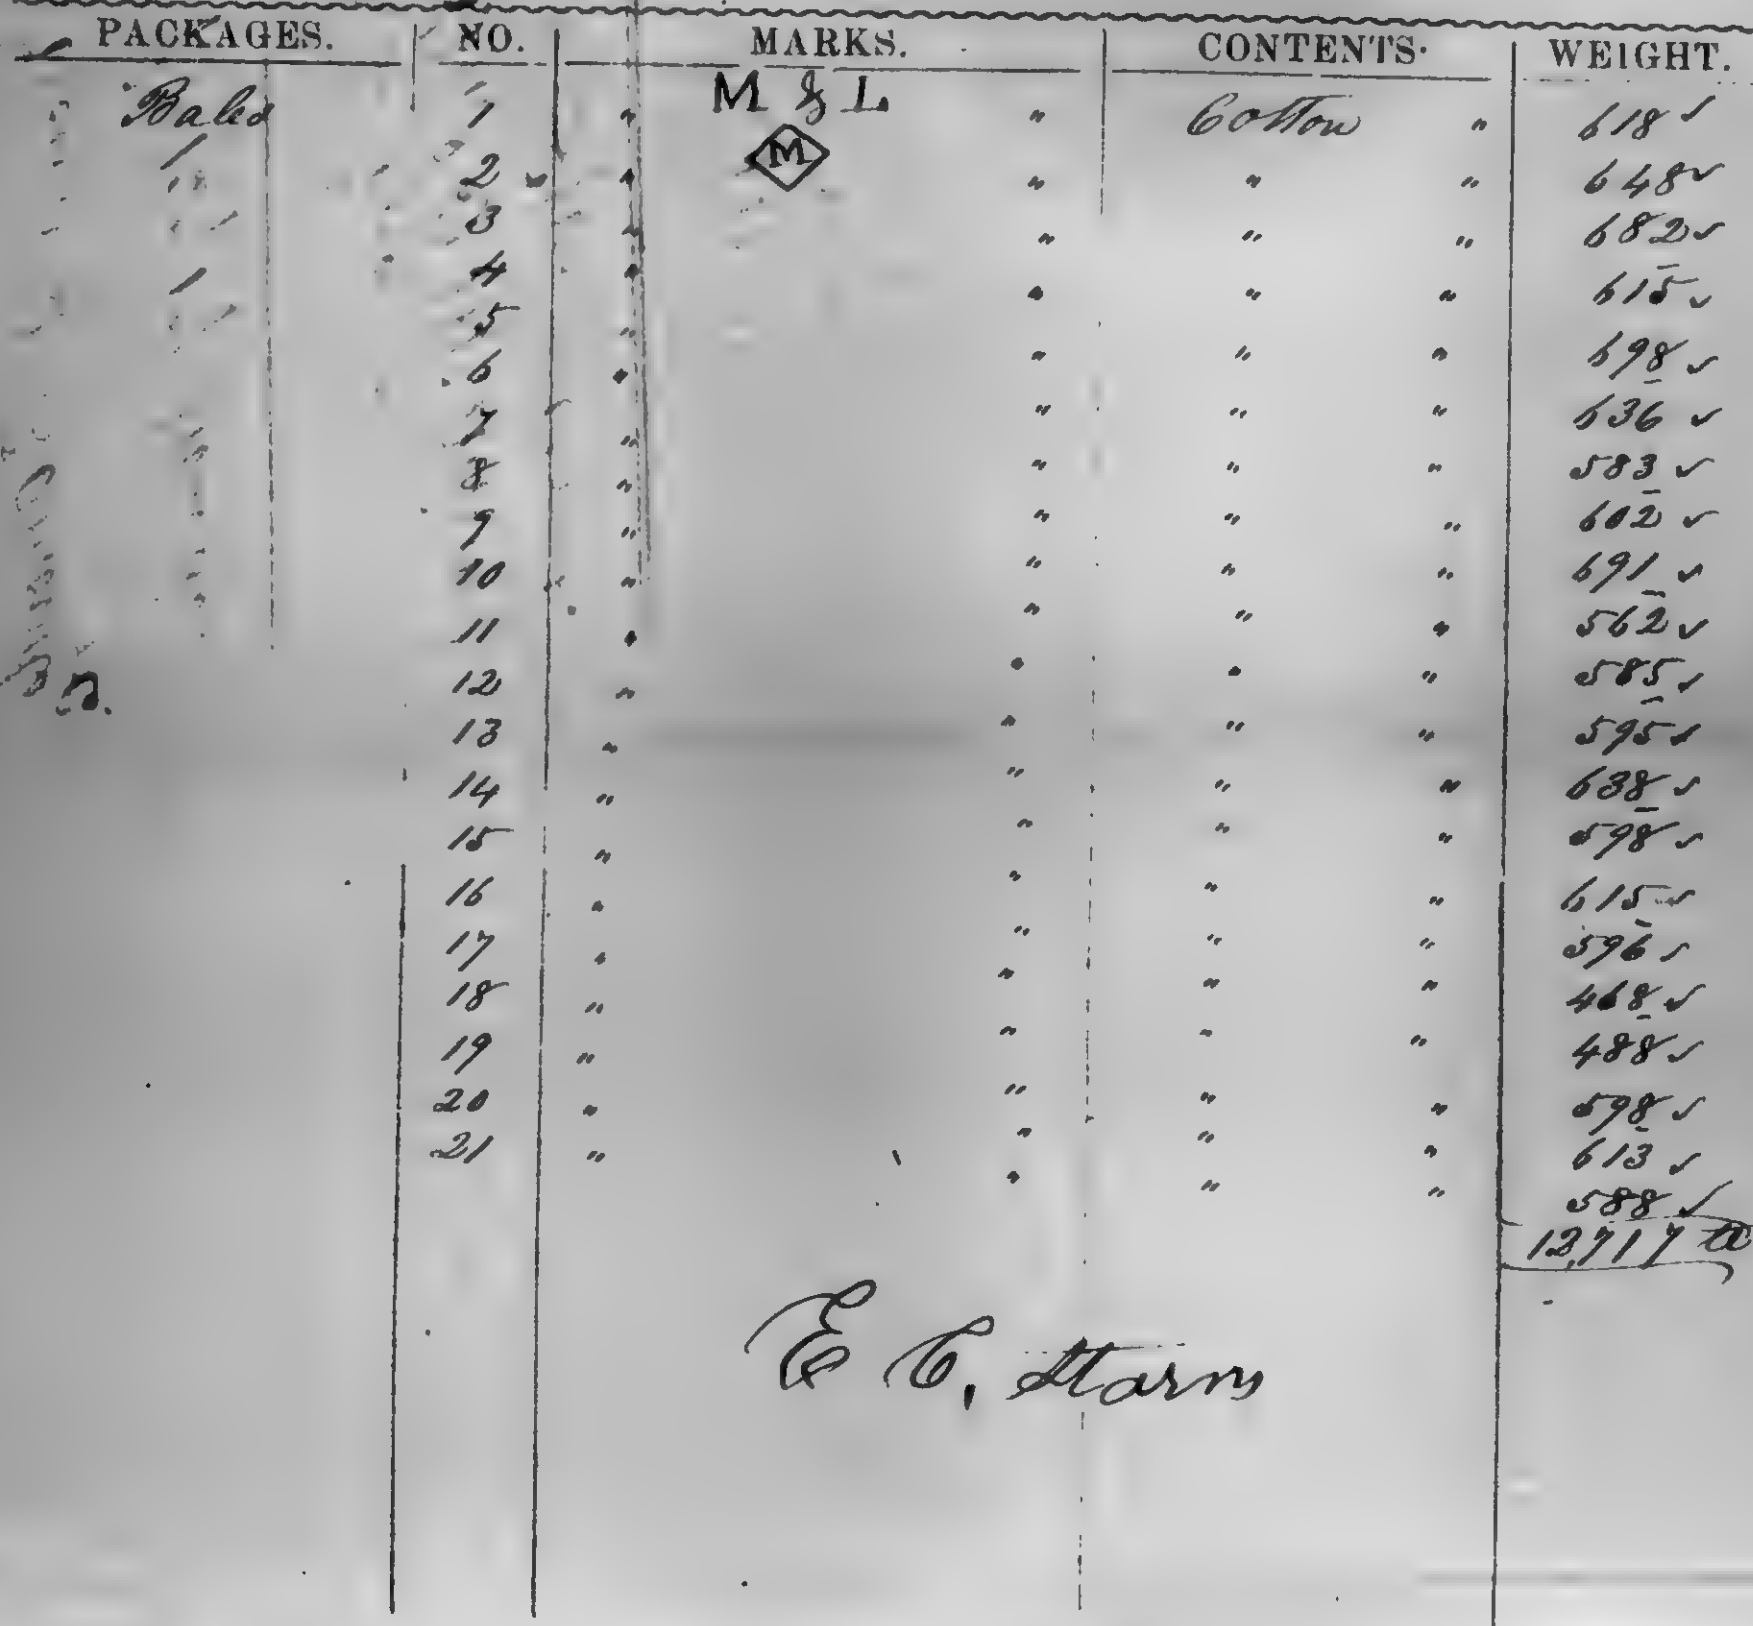 PACKAGES. NO. MARKS. CONTENTS. WEIGHT.
Bales 1 " M & L " Cotton " 618 ✓
2 " M " " " 648 ✓
3 " " " " 682 ✓
4 " " " " 615 ✓
5 " " " " 698 ✓
6 " " " " 636 ✓
7 " " " " 583 ✓
8 " " " " 602 ✓
9 " " " " 691 ✓
10 " " " " 562 ✓
11 " " " " 585 ✓
12 " " " " 595 ✓
13 " " " " 638 ✓
14 " " " " 598 ✓
15 " " " " 615 ✓
16 " " " " 596 ✓
17 " " " " 468 ✓
18 " " " " 488 ✓
19 " " " " 598 ✓
20 " " " " 613 ✓
21 " " " " 588 ✓
12,717
E C,